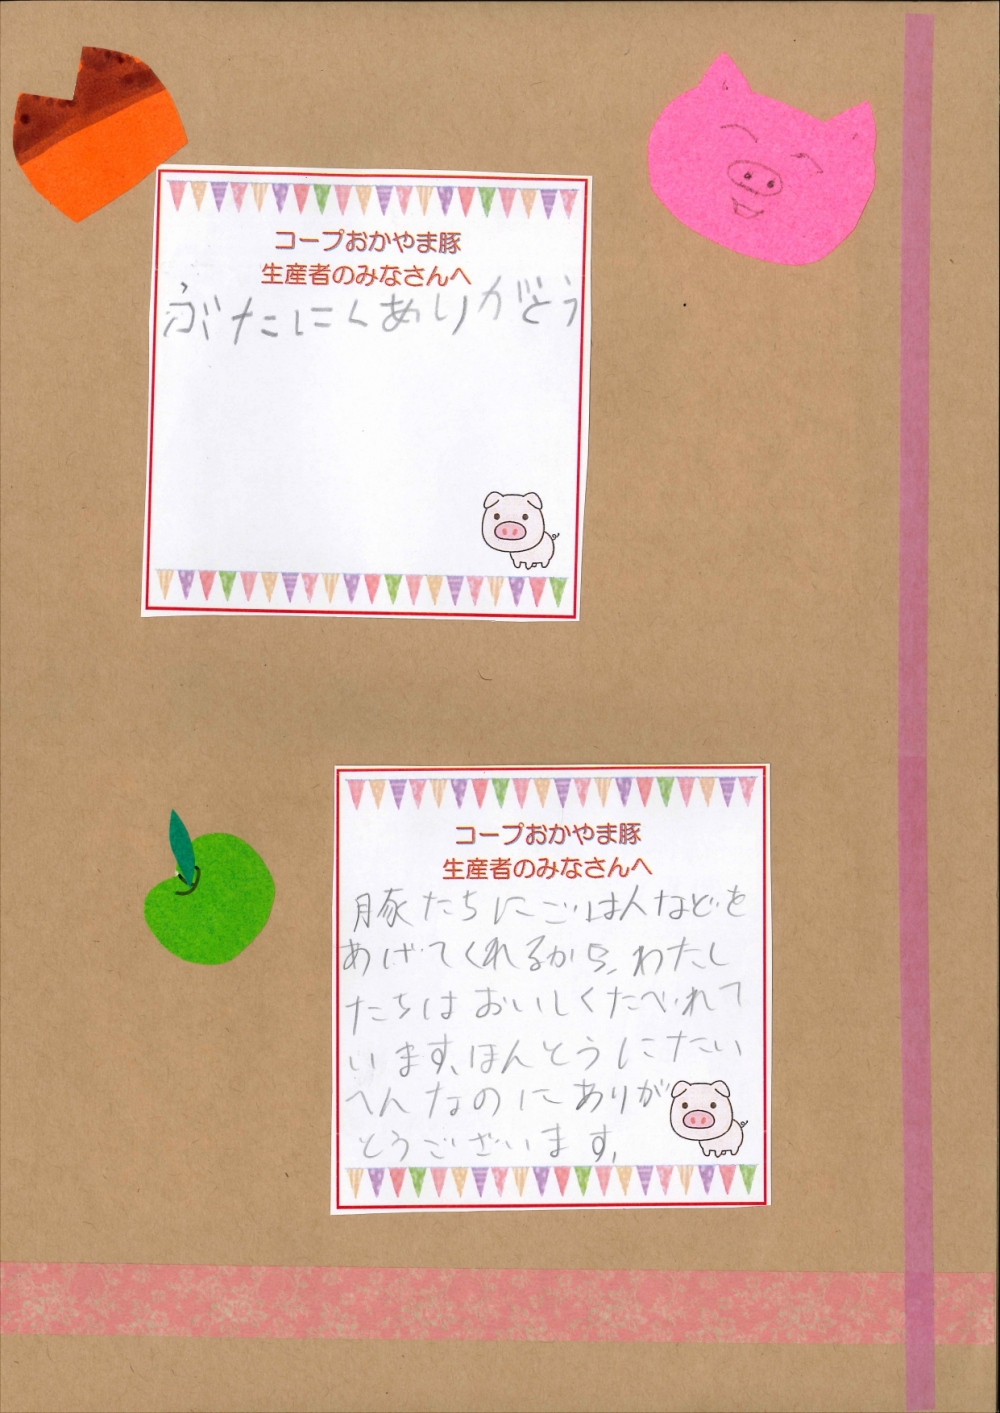 コープおかやま豚
生産者のみなさんへ
ぶたにくありがとう
コープおかやま豚
生産者のみなさんへ
豚たちにごは人などを
あげてくれるから、わたし
たちはおいしくたべれて
います、ほんとうにたい
へんなのにありが
とうございます、